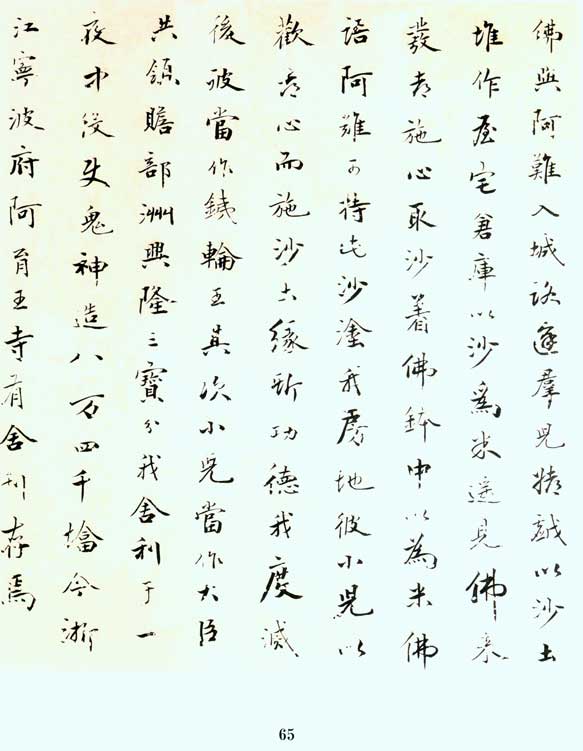 佛與阿難入城路逢羣兒嬉戲以沙土
堆作屋宅倉庫以沙為米遥見佛来
發大施心取沙着佛鉢中以為米佛
語阿難可持此沙塗我房地彼小兒以
歡喜心而施沙土緣斯功德我度滅
後彼當作鐵輪王其次小兒當作大臣
共領贍部洲興隆三寶分我舍利于一
夜中役使鬼神造八万四千塔今浙
江寧波府阿育王寺有舍利存焉
65